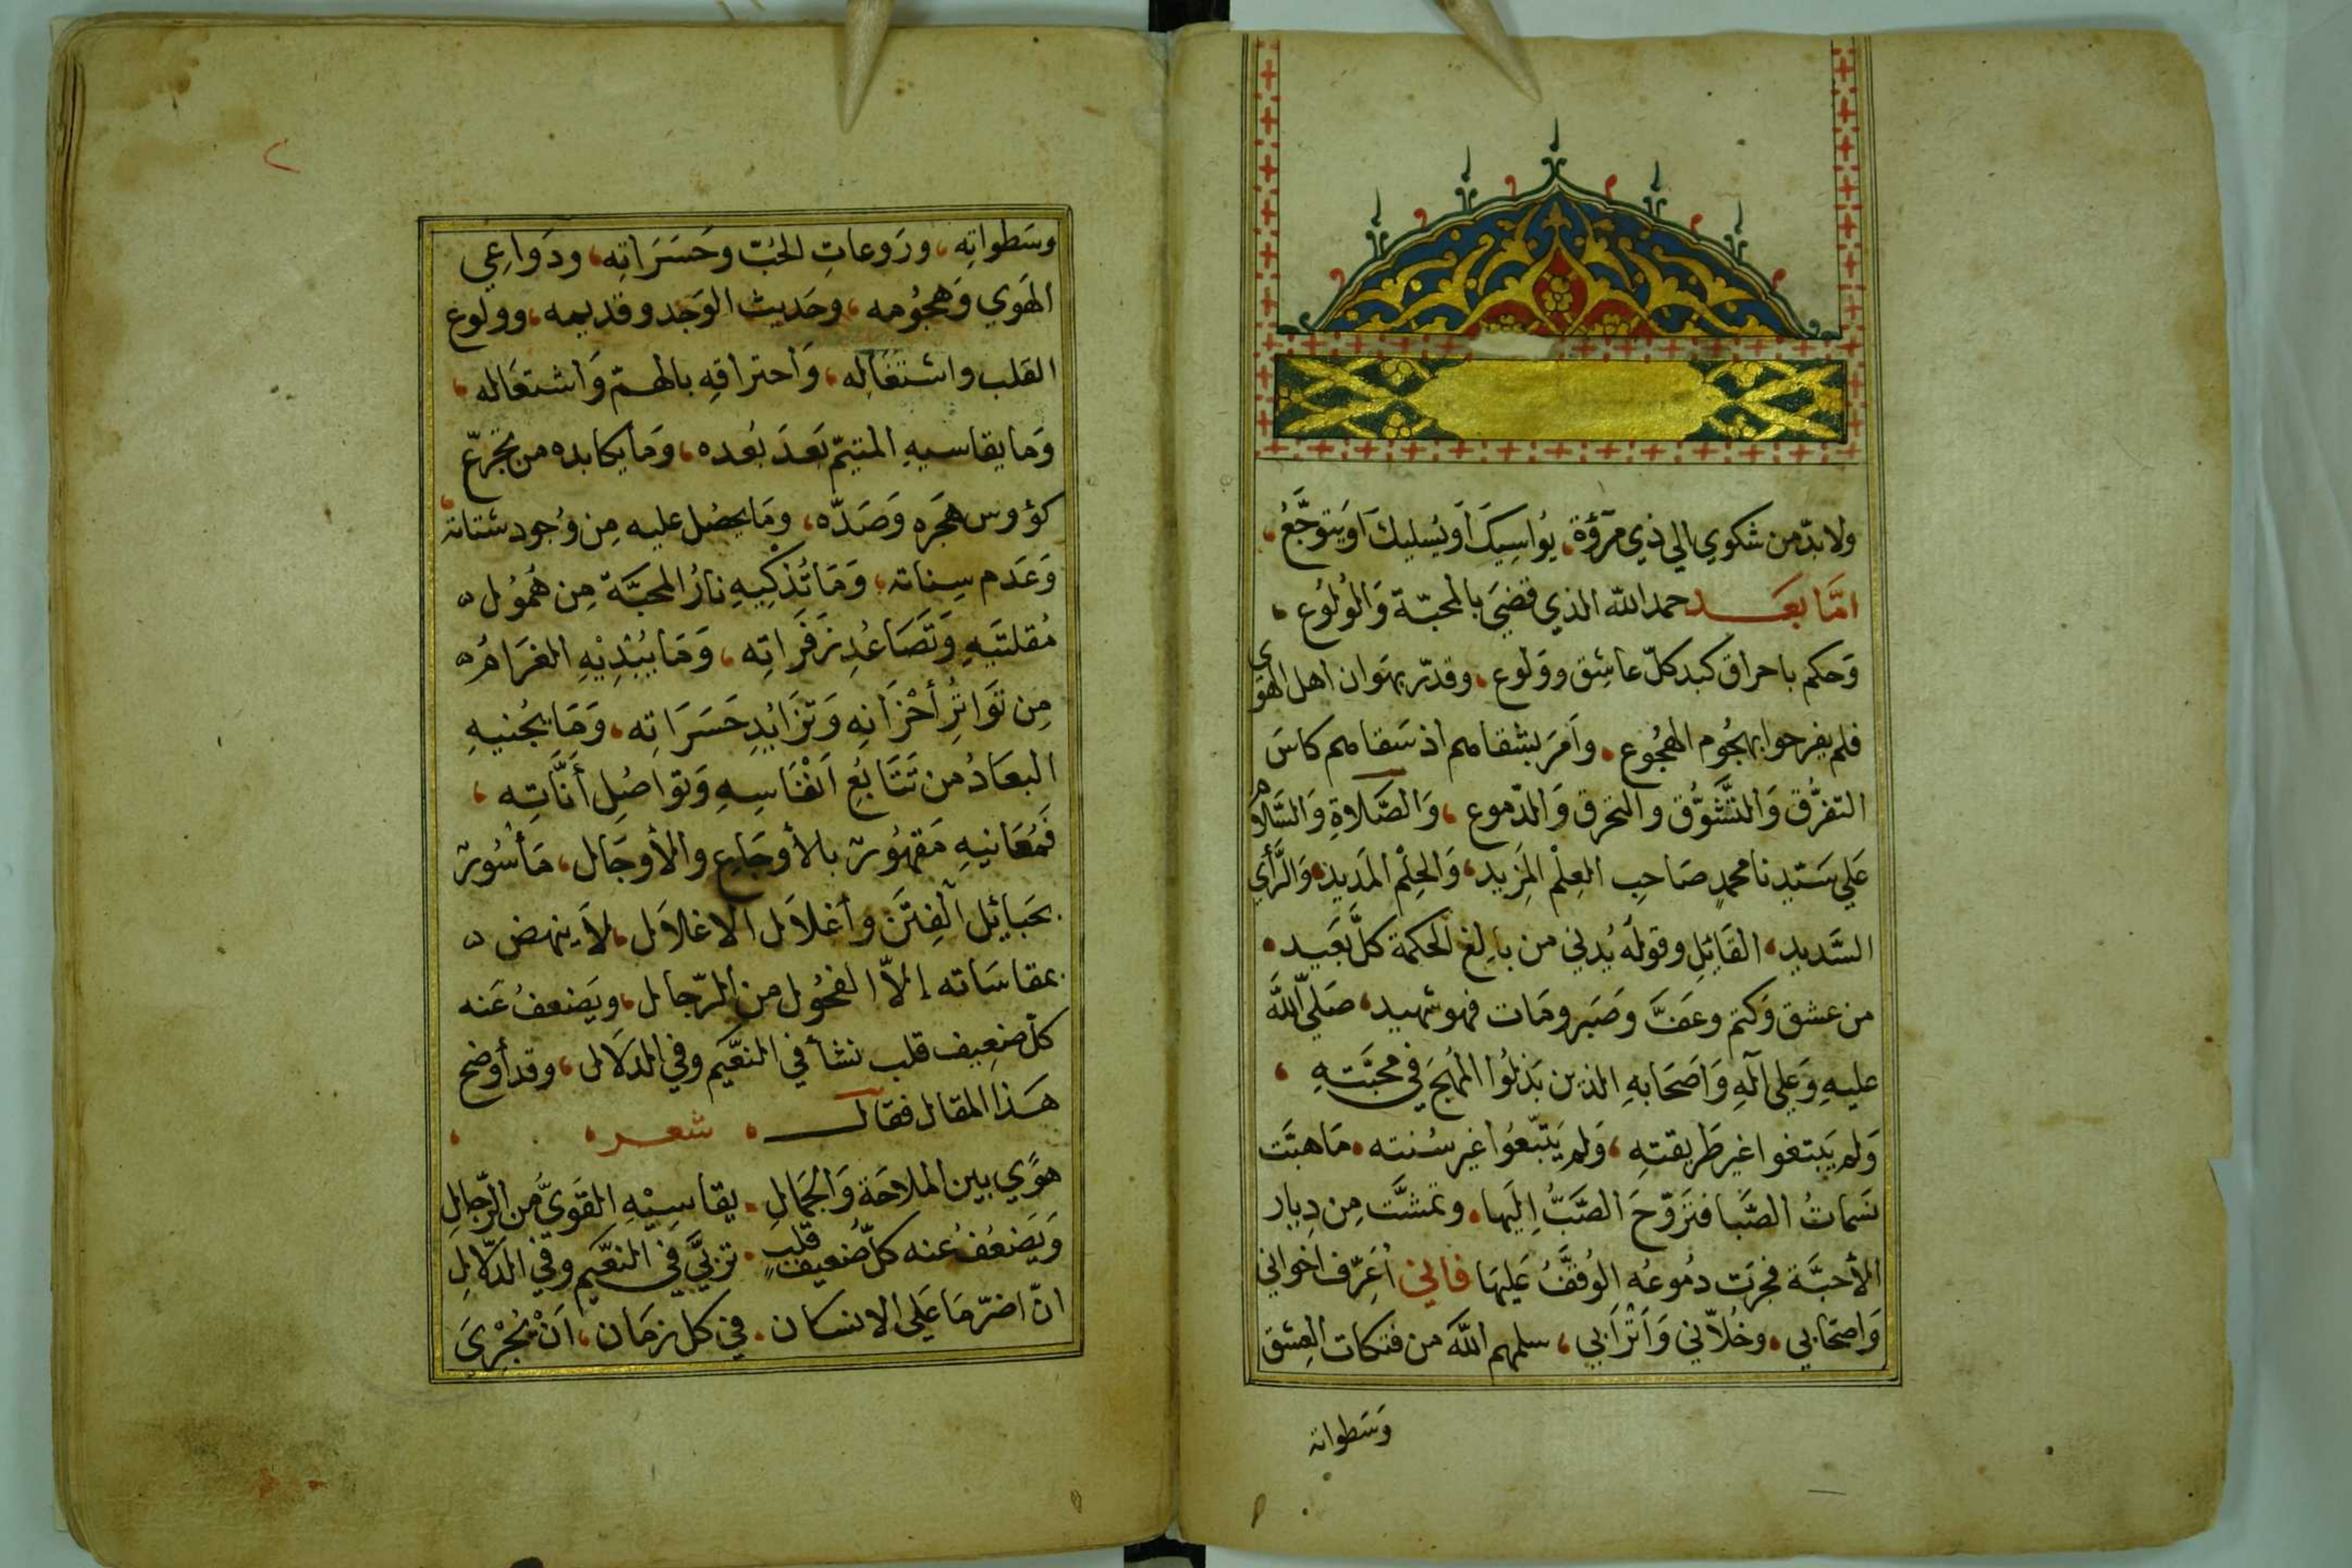 ولابدّ من شكوي الي ذي مرؤة، يُواسِيكَ أويُسليكَ اويَتوجَّعُ،
امّا بعد حمد الله الذي قضيَ بالمحبّة وَالوُلوُع،
وَحكم باحراق كبد كلّ عاشِق وولوع، وقدّر بهَوان اهل الهوَي
فلم يفرحوا بهجُوم الهجُوع، وأمَرَ بشقامهم اذ سَقامهم كاسَ
التفرُّق وَالتشَّوُّق والتحرق وَالدّموع، وَالصَّلاوةِ وَالسَّلام
عَلي سَيّدِنا محمدٍ صَاحِب العِلْمِ المَزِيد، وَالحِلْم المَدِيد، وَالرَّأي
السَّديد، القَايِلِ وقولُه يُدني من بالِغ الحكمة كلَّ بَعَيد،
من عشق وَكتم وعَفَّ وصَبَر ومَات فهو شهيد، صَلّي اللّه
عليهِ وَعَلي آلهِ وَأصَحَابهِ الذين بَذلُوا المُهَجَ في محبَّتهِ،
وَلم يَبتغوا غير طَريقتهِ، وَلم يَتبّعوُا غير سُنته، مَا هبَّت
نَسَماتُ الصَّبا فتَرَوّحَ الصَّبُّ إليَها، وتمشَّت مِن دِيار
الأحبَّة فجرَت دُموعُه الوُقفَّ عَليهَا فاني أعَرّف اخواني
وَاصحَابي، وخُلاّني وَأتْرَابي، سلمهم اللّهَ من فتكات العِشق
وَسَطواته
وسَطواتِه، ورَوعاتِ الحُبّ وحَسَرَاتِه، ودَواعِي
الهَوي وَهجُومه، وحَديث الوَجد وقديمه، وولوع
القلب واشتغَالِه، وَاحتراقِه بالهمّ وَاشتعَاله،
وَما يقاسيهِ المتيّم بَعدَ بُعده، وَما يكابده من تجرّع
كؤوس هجَره وَصَدّه، ومَا يحصُل عليه مِن وُجود شتاته
وَعَدَم سِناته، وَمَا تُذكِيهِ نارُ المحبَّة مِن هُمُوُل
مُقلتَيهِ وَتَصَاعُدِ زَفَرَاتِه، وَمَا يُبْدِيْهِ الغرَامُ
مِن تَوَاتُرِ أحْزَانِه وَتزَايُدِ حَسَرَاتِه، وَمَا يجُنيهِ
البعَادُ من تَتَابُعِ أنْفَاسِهِ وَتوَاصُلِ أنَّاتِه،
فَمُعَانيهِ مَقهُوُر بالأوجَاعِ والأوجَال، مَأسُور
بحَبايِل الفِتَن وأغلاَل الاغلاَل، لاَ ينهض
بمقاسَاته إلاّ الفحُول من الرّجال، ويَضعفُ عَنه
كلّ ضعِيف قلب نشأ في النعَّيم وفي الدلاَل، وقد أوضح
هَذا المقال فقال، شعر،
هوًي بين الملاحَة وَالجَمَالِ، يقاسِيْهِ القَويُّ مِن الرّجالِ
وَيَضعُفُ عنه كلّ ضَعيف قلبٍ، تربَّي في النعَّيم وفي الدلاَلِ
انّ اضرّ مَا عَلي الانسان، في كل زمَان، أنْ يُجْرِيَ